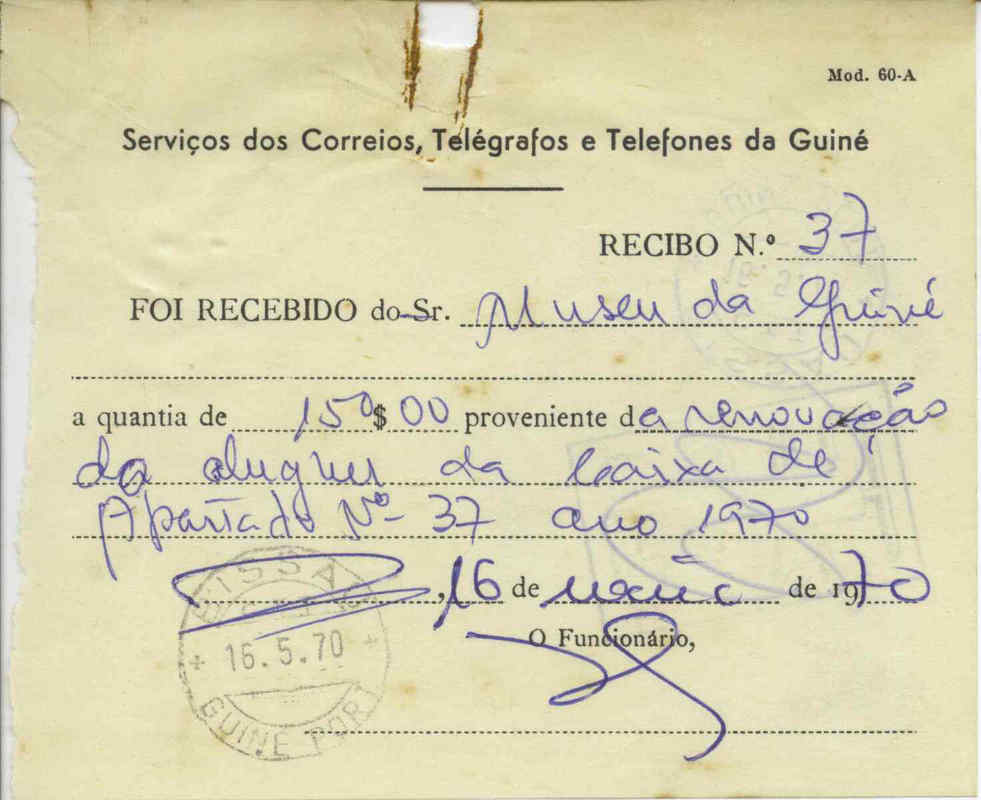 Mod. 60-A
Serviços dos Correios, Telégrafos e Telefones da Guiné
RECIBO N.º 37
FOI RECEBIDO do Sr. Museu da Guiné
a quantia de 150$00 proveniente da renovação
do aluguer da Caixa de
Apartado Nº 37 ano 1970
, 16 de maio de 1970
O Funcionário,
BISSAU
16.5.70
GUINÉ POR